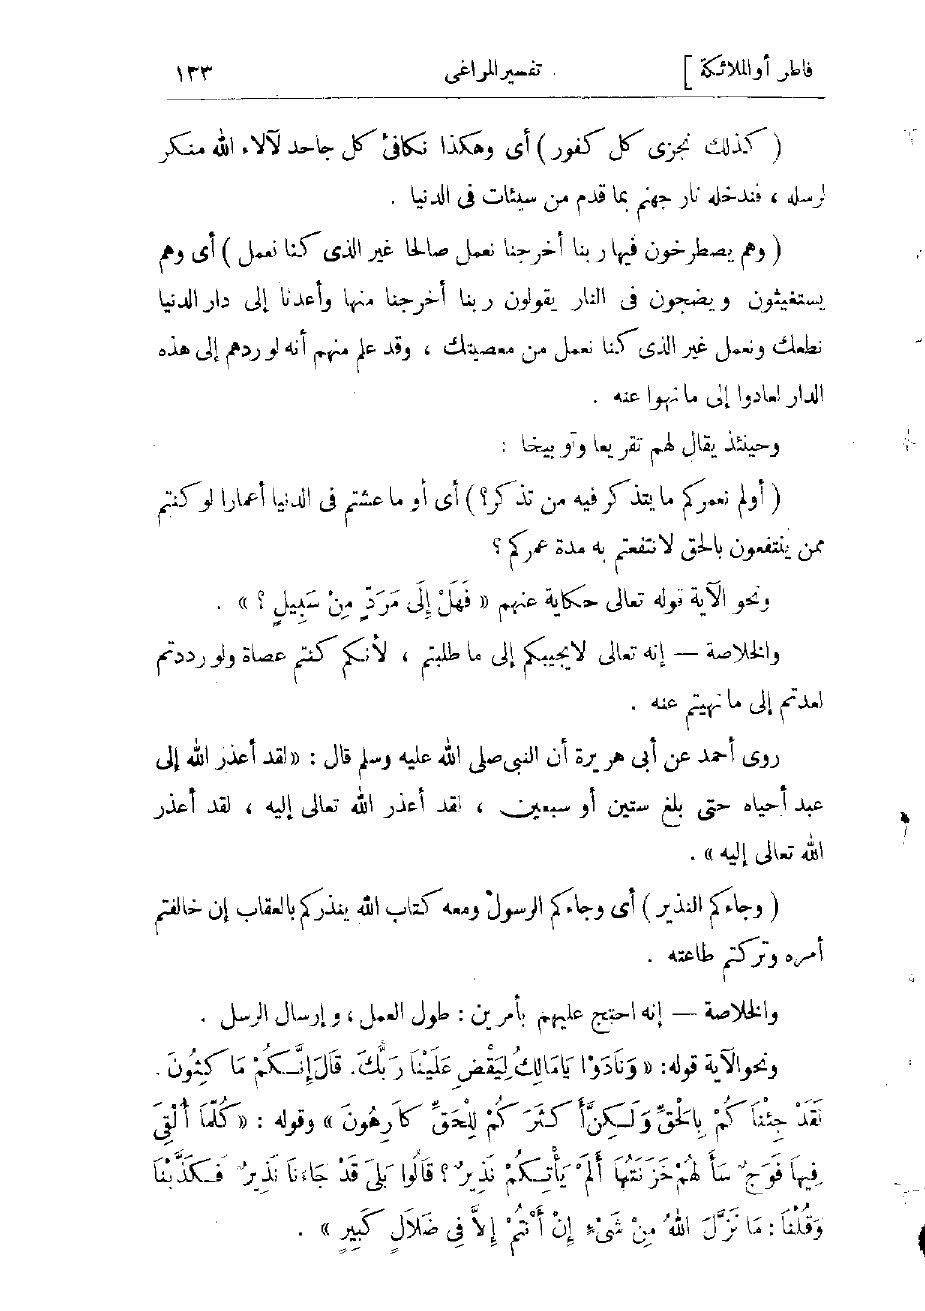 فاطر أو الملائكة ] تفسير المراغى . ١٣٣
( كذلك نجزى كل كفور ) أى وهكذا نكافئ كل جاحد لآلاء الله منكر
لرسله ، فندخله نار جهنم بما قدم من سيئات فى الدنيا .
( وهم يصطرخون فيها ربنا أخرجنا نعمل صالحا غير الذى كنا نعمل ) أى وهم
يستغيثون ويضجون فى النار يقولون ربنا أخرجنا منها وأعدنا إلى دار الدنيا
نطعك ونعمل غير الذى كنا نعمل من معصيتك ، وقد علم منهم أنه لو ردهم إلى هذه
الدار لعادوا إلى ما نهوا عنه .
وحينئذ يقال لهم تقريعا وتوبيخا :
( أولم نعمركم ما يتذكر فيه من تذكر؟ ) أى أو ما عشتم فى الدنيا أعمارا لو كنتم
ممن ينتفعون بالحق لانتفعتم به مدة عمركم ؟
ونحو الآية قوله تعالى حكاية عنهم « فَهَلْ إِلَى مَرَدٍّ مِنْ سَبِيلٍ ؟ » .
والخلاصة — إنه تعالى لا يجيبكم إلى ما طلبتم ، لأنكم كنتم عصاة ولو رددتم
لعدتم إلى ما نهيتم عنه .
روى أحمد عن أبى هريرة أن النبى صلى الله عليه وسلم قال : « لقد أعذر الله إلى
عبد أحياه حتى بلغ ستين أو سبعين ، لقد أعذر الله تعالى إليه ، لقد أعذر
الله تعالى إليه » .
( وجاءكم النذير ) أى وجاءكم الرسول ومعه كتاب الله ينذركم بالعقاب إن خالفتم
أمره وتركتم طاعته .
والخلاصة — إنه احتج عليهم بأمرين : طول العمل ، وإرسال الرسل .
ونحو الآية قوله: « وَنَادَوْا يَامَالِكُ لِيَقْضِ عَلَيْنَا رَبُّكَ. قَالَ إِنَّكُمْ مَا كِثُونَ .
لَقَدْ جِئْنَا كُمْ بِالْحَقِّ وَلَكِنَّ أَكْثَرَ كُمْ لِلْحَقِّ كَارِهُونَ » وقوله : « كُلَّمَا أُلْقِىَ
فِيهَا فَوْجٌ سَأَلَهُمْ خَزَنَتُهَا أَلَمْ يَأْتِكُمْ نَذِيرٌ ؟ قَالُوا بَلَى قَدْ جَاءَنَا نَذِيرٌ فَكَذَّبْنَا
وَقُلْنَا : مَا نَزَّلَ اللهُ مِنْ شَىْءٍ إِنْ أَنْتُمْ إِلاَّ فِى ضَلاَلٍ كَبِيرٍ » .